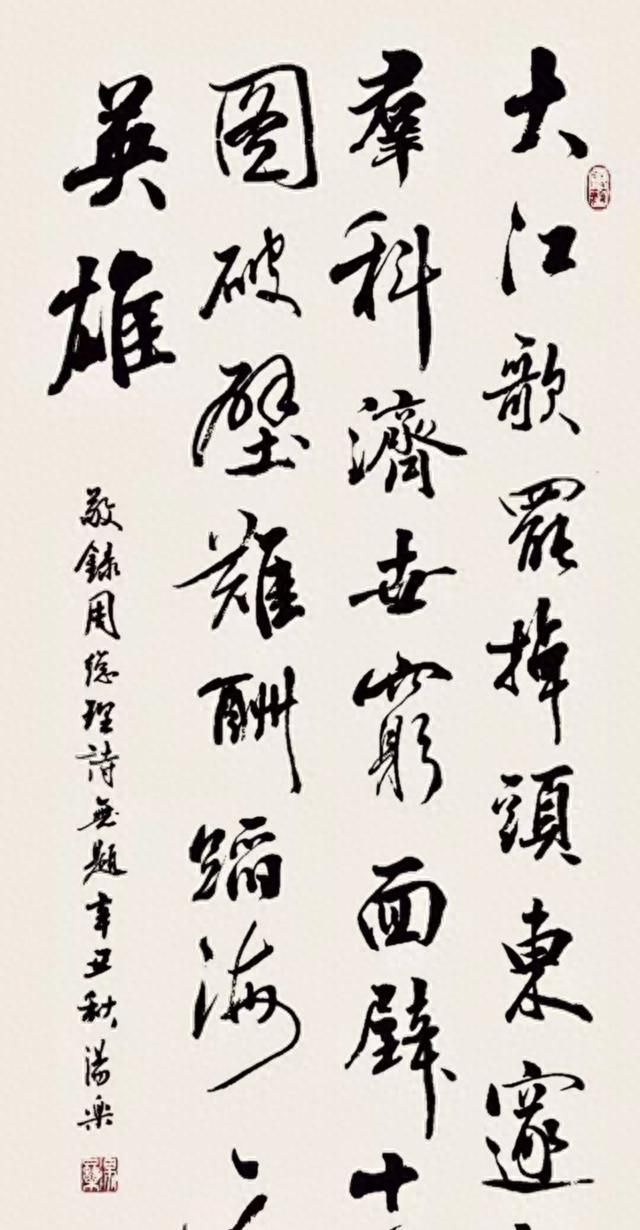 大江歌罷掉頭東邃
羣科濟世窮面壁十
圖破壁難酬蹈海
英雄
敬錄周總理詩無題辛丑秋湯樂